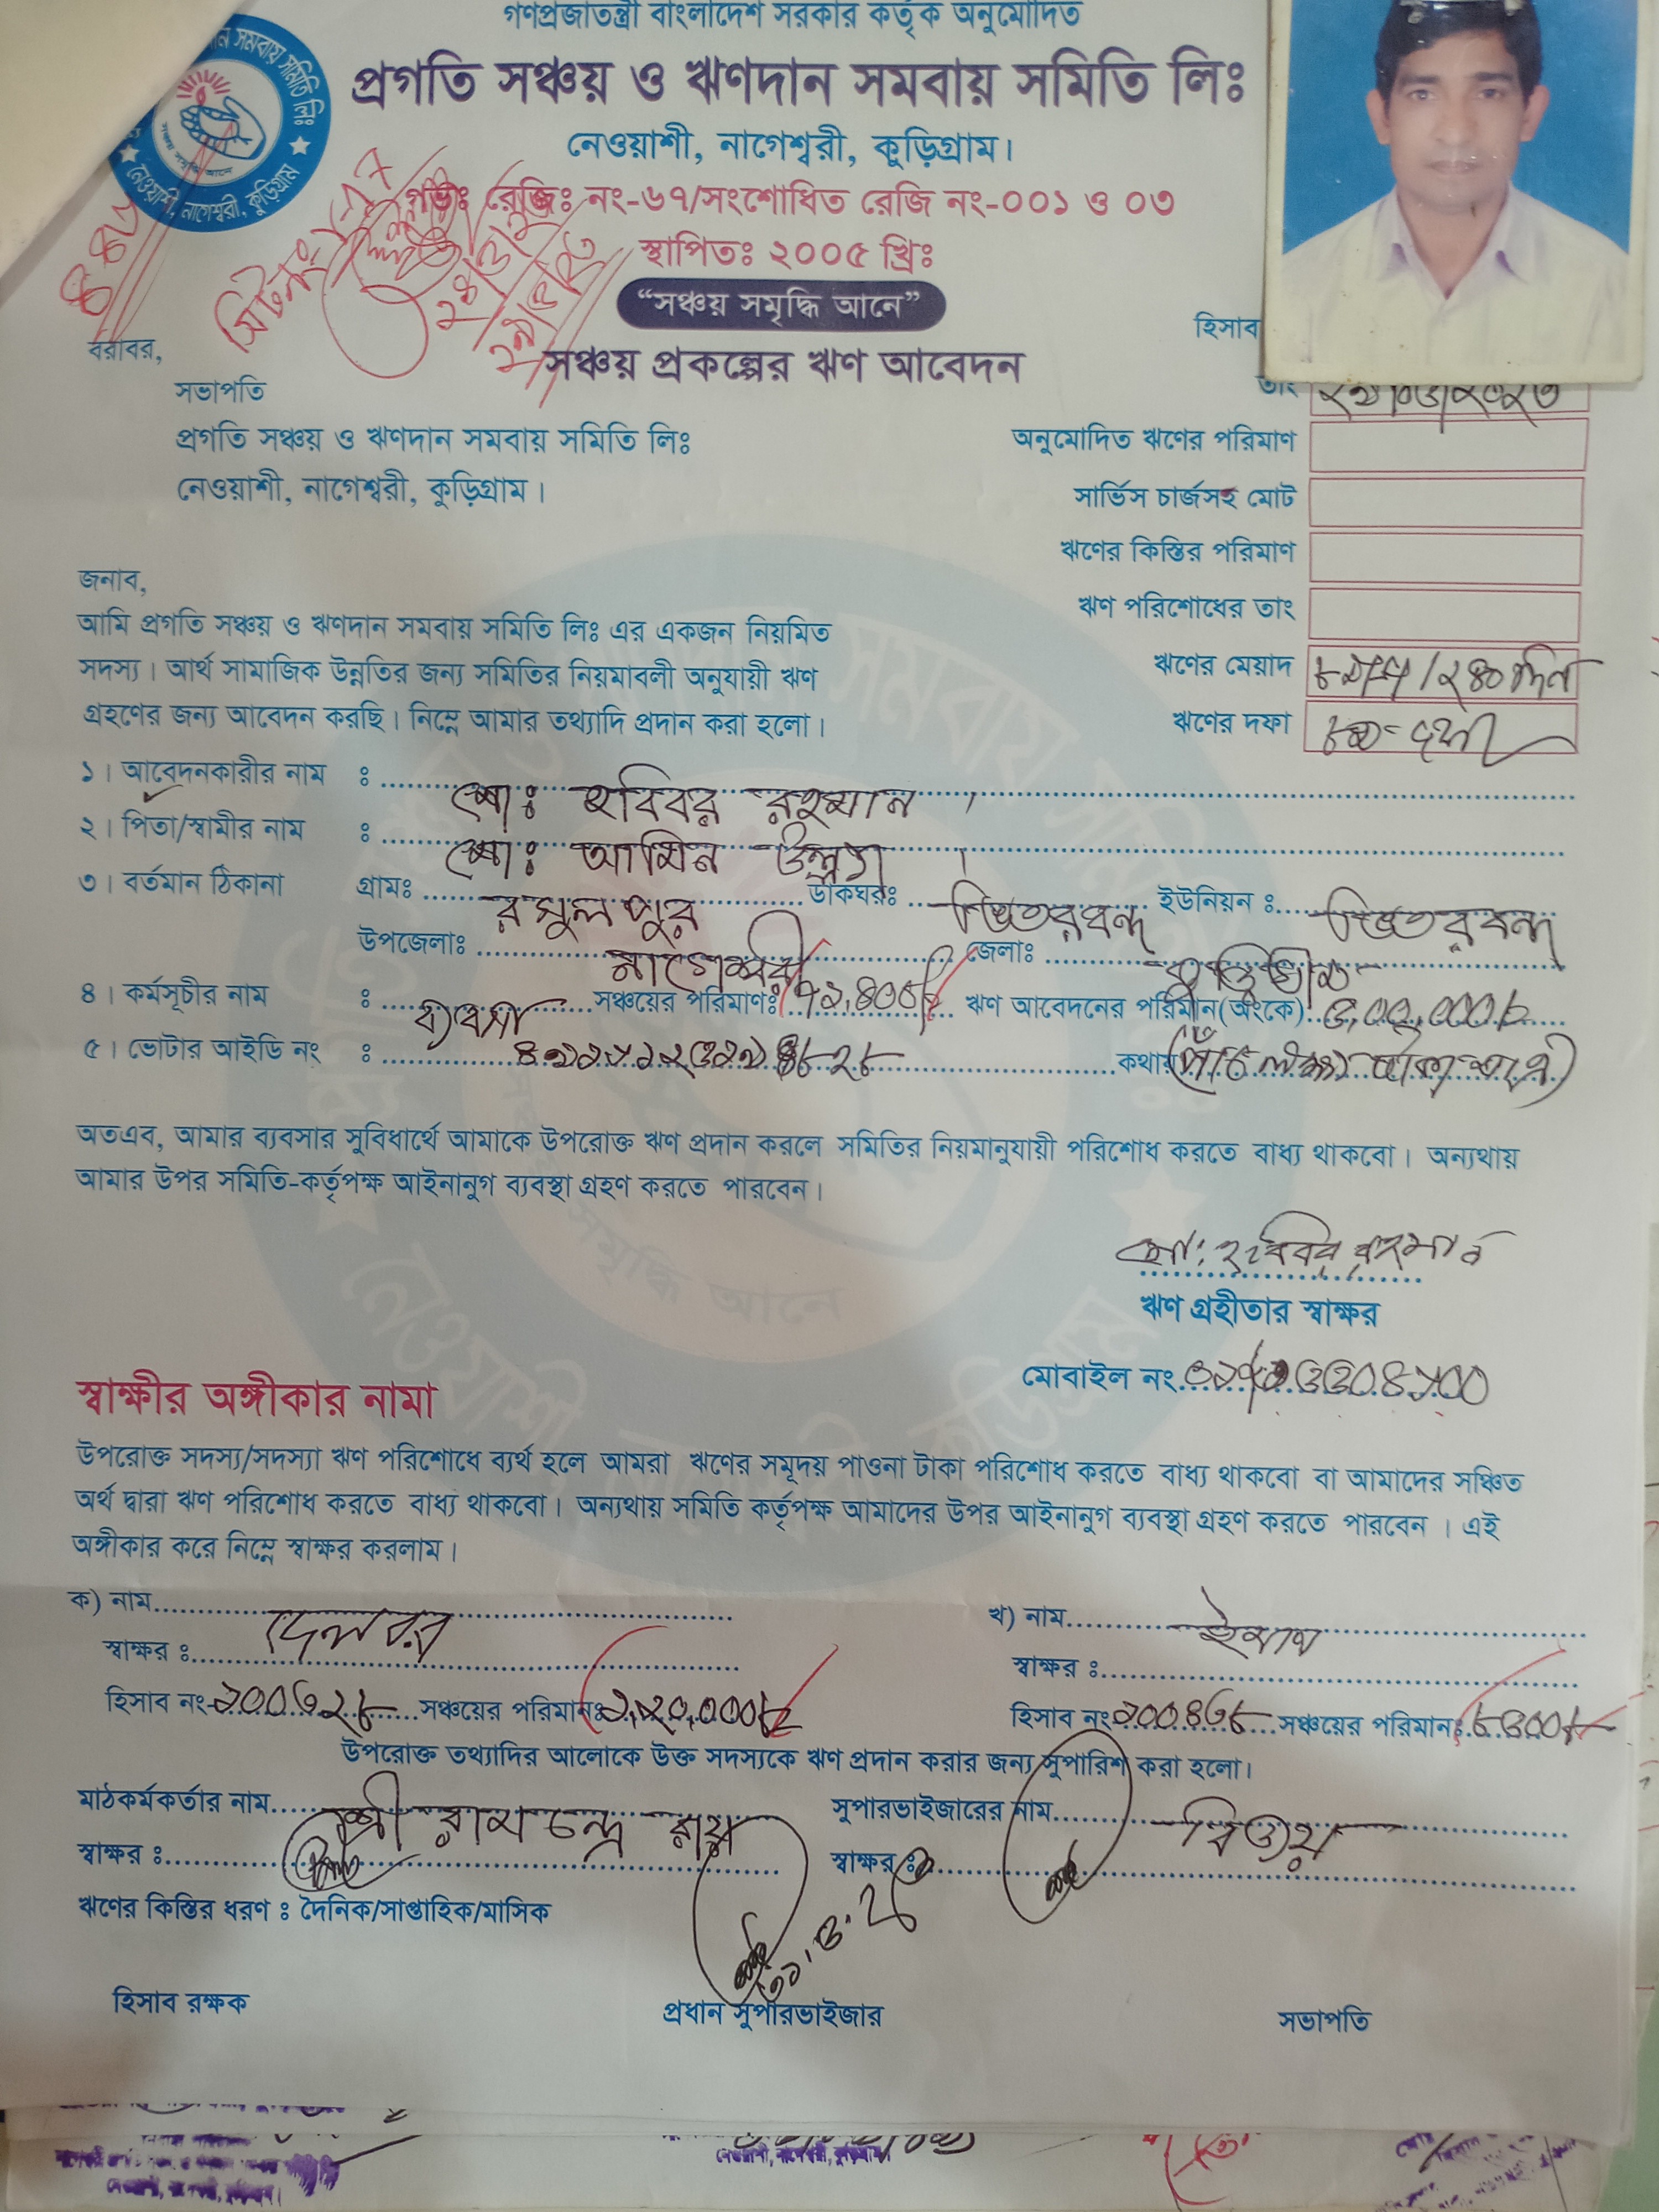 গণপ্রজাতন্ত্রী বাংলাদেশ সরকার কর্তৃক অনুমোদিত
প্রগতি সঞ্চয় ও ঋণদান সমবায় সমিতি লিঃ
নেওয়াশী, নাগেশ্বরী, কুড়িগ্রাম।
গভঃ রেজিঃ নং-৬৭/সংশোধিত রেজি নং-০০১ ও ০৩
স্থাপিতঃ ২০০৫ খ্রিঃ
“সঞ্চয় সমৃদ্ধি আনে”
সঞ্চয় প্রকল্পের ঋণ আবেদন
হিসাব
বরাবর,
সভাপতি
তাং
প্রগতি সঞ্চয় ও ঋণদান সমবায় সমিতি লিঃ
অনুমোদিত ঋণের পরিমাণ
নেওয়াশী, নাগেশ্বরী, কুড়িগ্রাম।
সার্ভিস চার্জসহ মোট
ঋণের কিস্তির পরিমাণ
ঋণ পরিশোধের তাং
ঋণের মেয়াদ ৮ মাস/২৪০ দিন
ঋণের দফা
জনাব,
আমি প্রগতি সঞ্চয় ও ঋণদান সমবায় সমিতি লিঃ এর একজন নিয়মিত
সদস্য। আর্থ সামাজিক উন্নতির জন্য সমিতির নিয়মাবলী অনুযায়ী ঋণ
গ্রহণের জন্য আবেদন করছি। নিম্নে আমার তথ্যাদি প্রদান করা হলো।
১। আবেদনকারীর নাম : মোঃ হবিবর রহমান।
২। পিতা/স্বামীর নাম : মোঃ আমিন উল্লা।
৩। বর্তমান ঠিকানা গ্রামঃ রসুলপুর ডাকঘরঃ ভিতরবন্দ ইউনিয়ন : ভিতরবন্দ
উপজেলাঃ নাগেশ্বরী জেলাঃ কুড়িগ্রাম
৪। কর্মসূচীর নাম : ব্যবসা সঞ্চয়ের পরিমাণঃ ঋণ আবেদনের পরিমান(অংকে) ৫,০০,০০০/-
৫। ভোটার আইডি নং : কথায় (পাঁচ লক্ষ টাকা মাত্র)
অতএব, আমার ব্যবসার সুবিধার্থে আমাকে উপরোক্ত ঋণ প্রদান করলে সমিতির নিয়মানুযায়ী পরিশোধ করতে বাধ্য থাকবো। অন্যথায়
আমার উপর সমিতি-কর্তৃপক্ষ আইনানুগ ব্যবস্থা গ্রহণ করতে পারবেন।
মোঃ হবিবর রহমান
ঋণ গ্রহীতার স্বাক্ষর
মোবাইল নং
স্বাক্ষীর অঙ্গীকার নামা
উপরোক্ত সদস্য/সদস্যা ঋণ পরিশোধে ব্যর্থ হলে আমরা ঋণের সমূদয় পাওনা টাকা পরিশোধ করতে বাধ্য থাকবো বা আমাদের সঞ্চিত
অর্থ দ্বারা ঋণ পরিশোধ করতে বাধ্য থাকবো। অন্যথায় সমিতি কর্তৃপক্ষ আমাদের উপর আইনানুগ ব্যবস্থা গ্রহণ করতে পারবেন। এই
অঙ্গীকার করে নিম্নে স্বাক্ষর করলাম।
ক) নাম দেলবর
স্বাক্ষর :
হিসাব নং- সঞ্চয়ের পরিমানঃ
খ) নাম ইমাম
স্বাক্ষর :
হিসাব নং সঞ্চয়ের পরিমানঃ
উপরোক্ত তথ্যাদির আলোকে উক্ত সদস্যকে ঋণ প্রদান করার জন্য সুপারিশ করা হলো।
মাঠকর্মকর্তার নাম শ্রী রাম চন্দ্র রায় সুপারভাইজারের নাম বিজয়
স্বাক্ষর : স্বাক্ষর :
ঋণের কিস্তির ধরণ : দৈনিক/সাপ্তাহিক/মাসিক
হিসাব রক্ষক প্রধান সুপারভাইজার সভাপতি